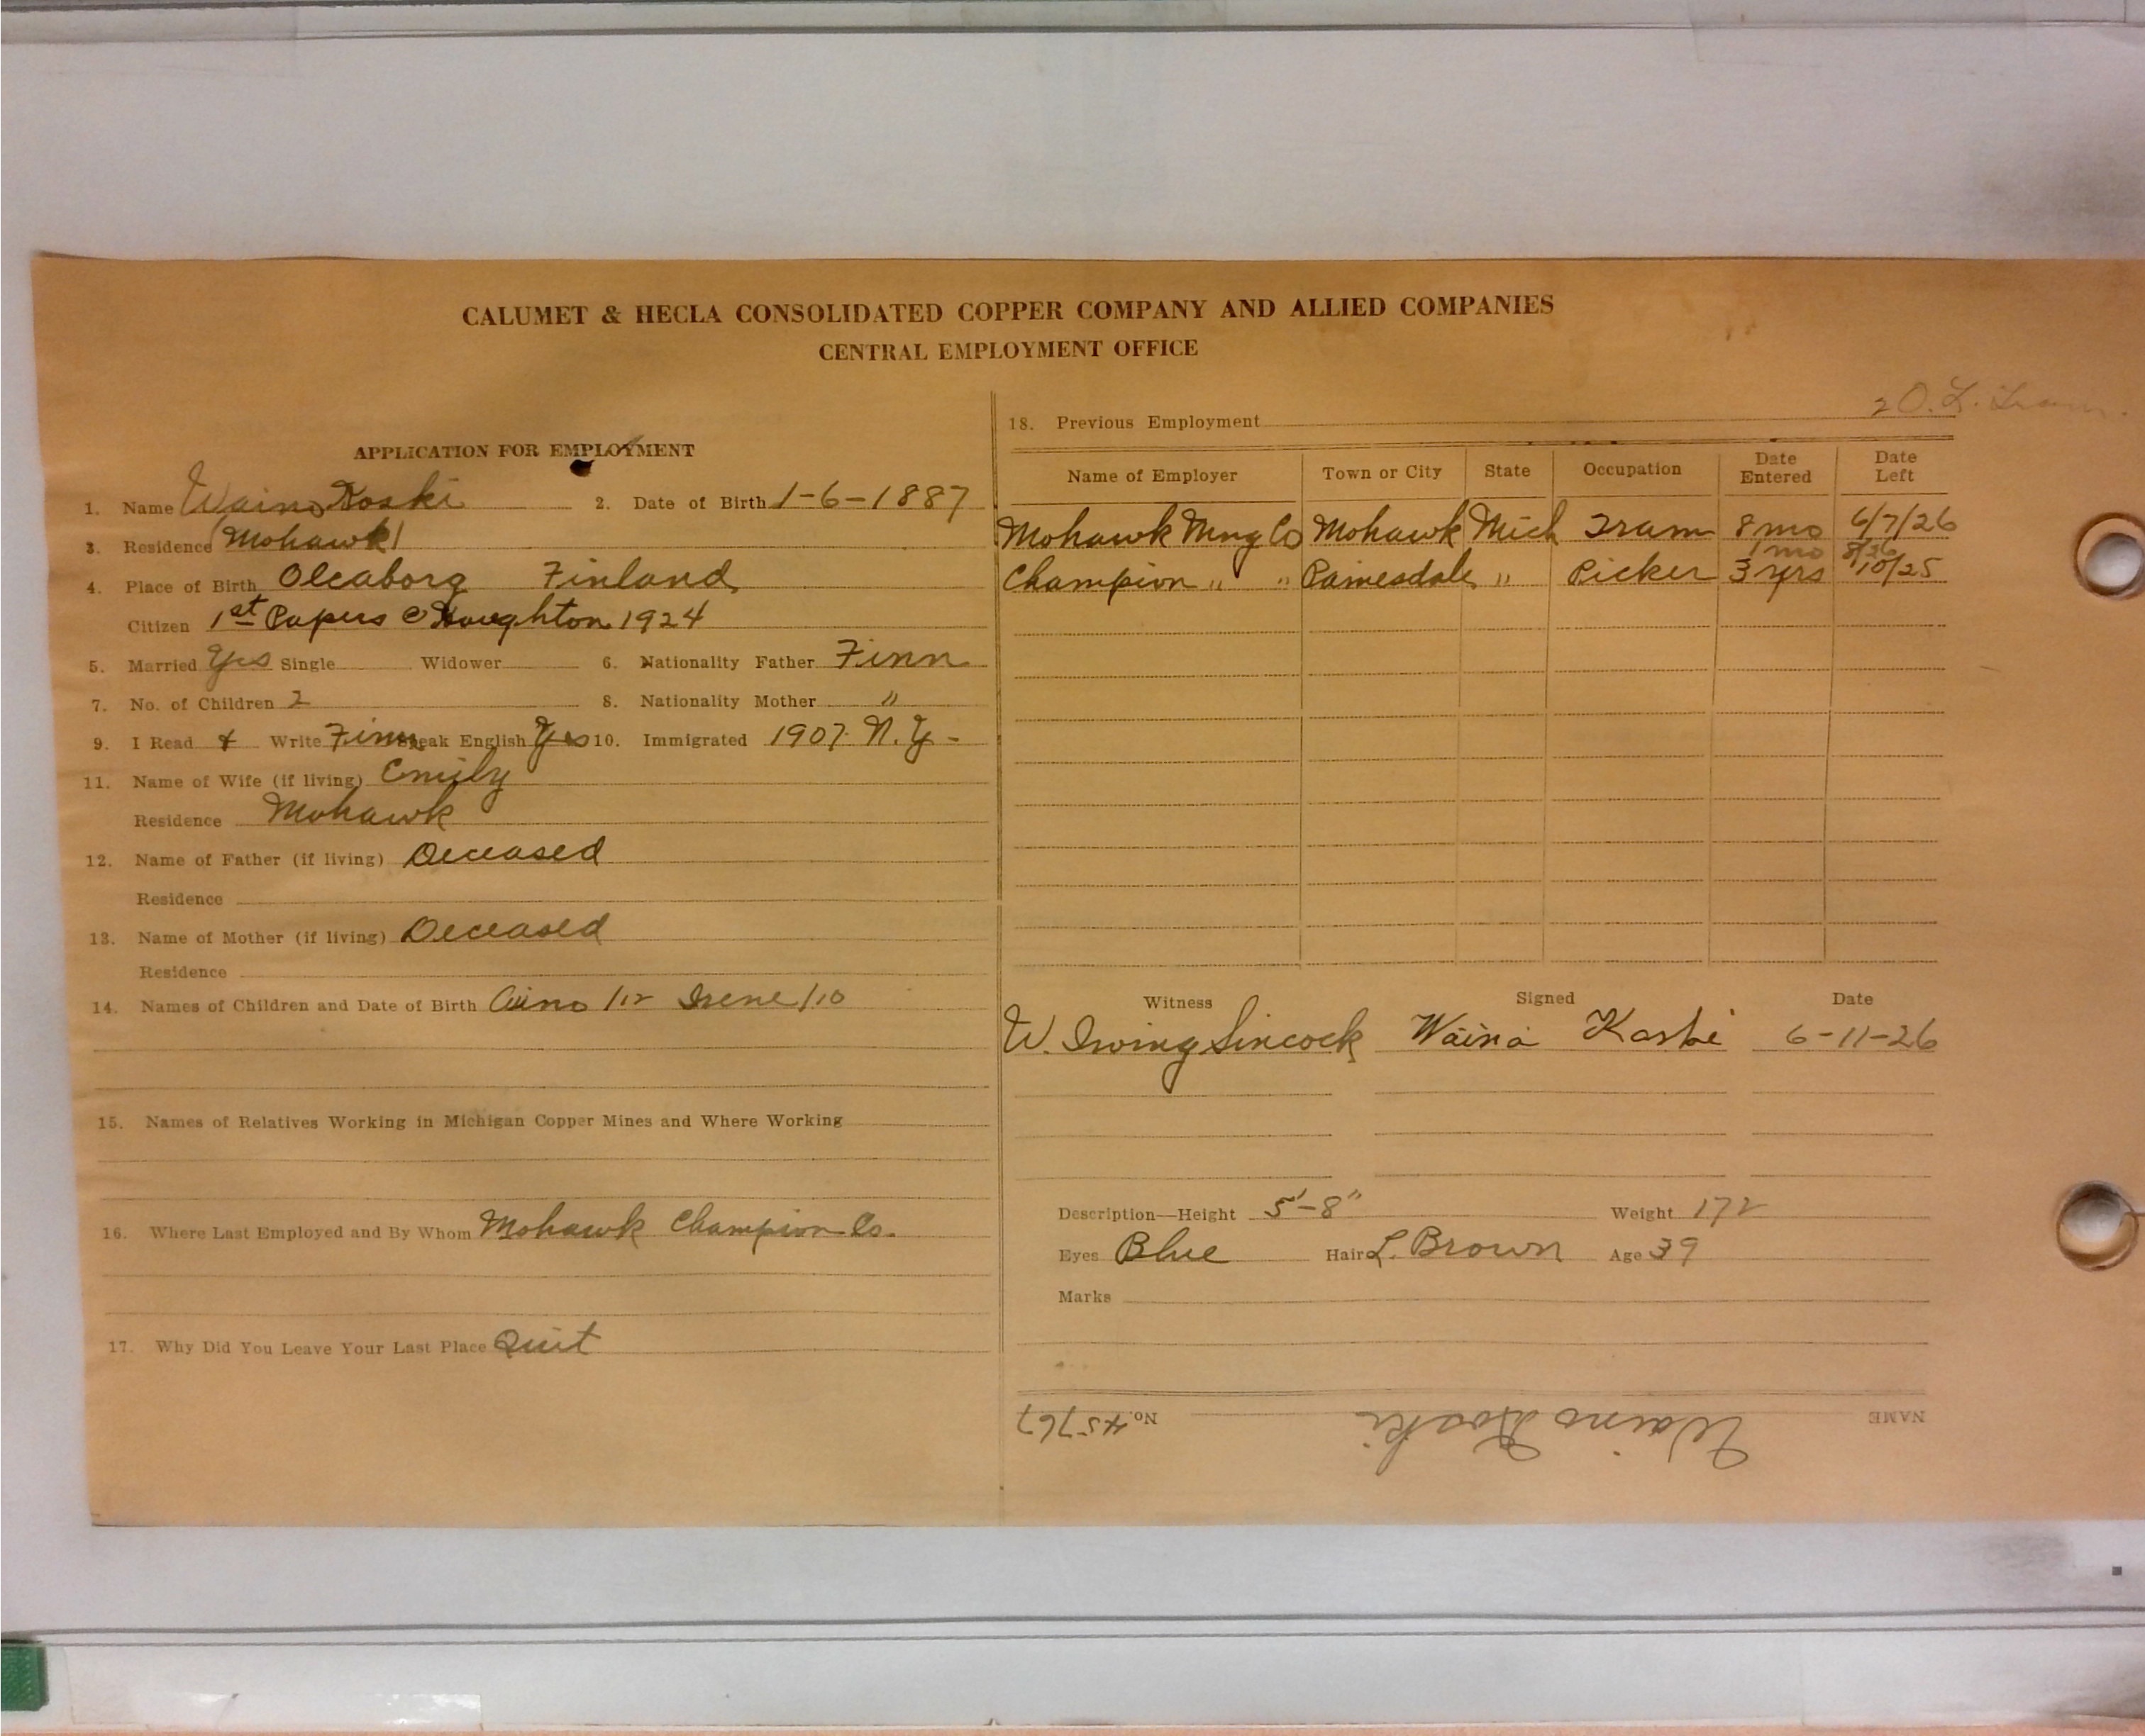 CALUMET & HECLA CONSOLIDATED COPPER COMPANY AND ALLIED COMPANIES
CENTRAL EMPLOYMENT OFFICE
APPLICATION FOR EMPLOYMENT
1. Name Waino Koski 2. Date of Birth 1-6-1887
3. Residence Mohawk
4. Place of Birth Oleaborg Finland
Citizen 1st Papers @ Houghton 1924
5. Married Yes Single Widower 6. Nationality Father Finn
7. No. of Children 2 8. Nationality Mother "
9. I Read & Write Finn Speak English Yes 10. Immigrated 1907 N.Y-
11. Name of Wife (if living) Emily
Residence Mohawk
12. Name of Father (if living) Deceased
Residence
13. Name of Mother (if living) Deceased
Residence
14. Names of Children and Date of Birth Aino /12 Irene /10
15. Names of Relatives Working in Michigan Copper Mines and Where Working
16. Where Last Employed and By Whom Mohawk Champion Co.
17. Why Did You Leave Your Last Place Quit
2 O.L. Tram
18. Previous Employment
Name of Employer Town or City State Occupation Date Entered Date Left
Mohawk Mng Co Mohawk Mich Tram 8 mo 6/7/26
1 mo 8/26
Champion " " Painesdale " Picker 3 yrs 10/25
Witness Signed Date
W. Irving Sincock Wäinö Koski 6-11-26
Description—Height 5'-8" Weight 172
Eyes Blue Hair L. Brown Age 39
Marks
NAME Waino Koski No. 45767